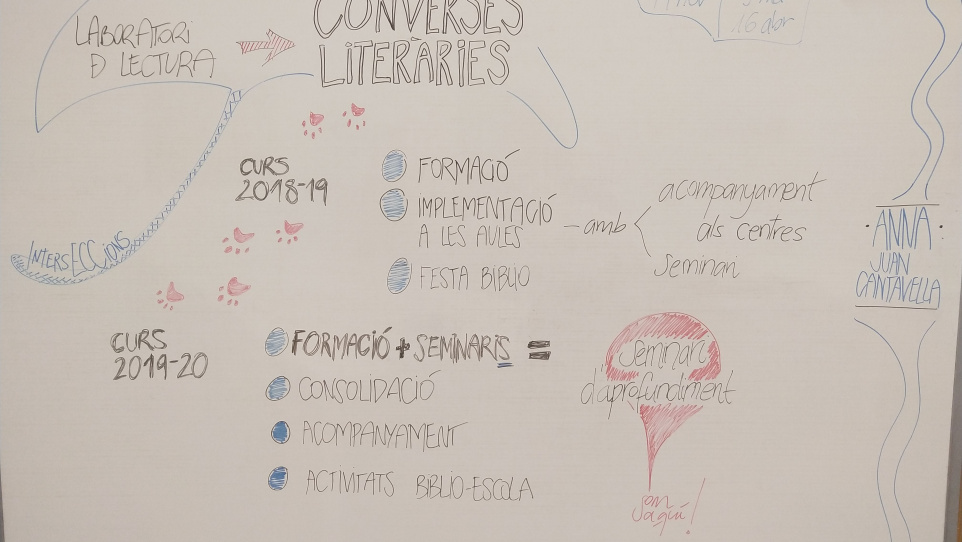 LABORATORI
D LECTURA
CONVERSES
LITERÀRIES
16 abr
INTERSECCIONS
CURS
2018-19
FORMACIÓ
IMPLEMENTACIÓ
A LES AULES
FESTA BIBLIO
- amb
acompanyament
als centres
Seminari
·ANNA·
JUAN
CANTAVELLA
CURS
2019-20
FORMACIÓ + SEMINARIS =
CONSOLIDACIÓ
ACOMPANYAMENT
ACTIVITATS BIBLIO-ESCOLA
Seminari
d'aprofundiment
som
aquí!